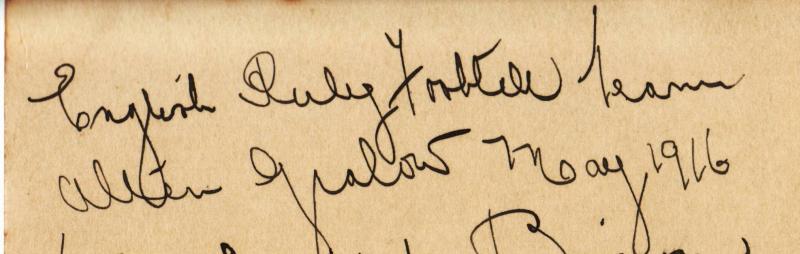 English Ruby Football team
Alten Grabow May 1916